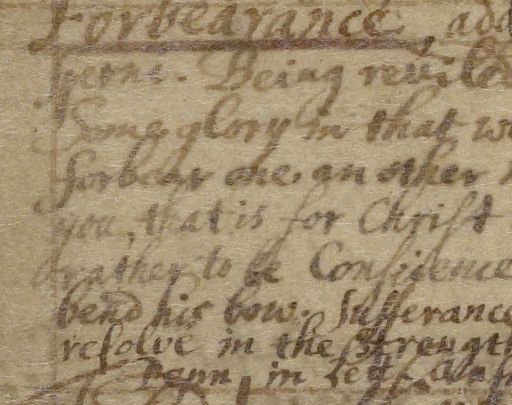 Forbearance, add
Being reviled
Some glory in that w
forbear one another
you, that is for Christ
rather to be
bend his bow. Sufferance
resolve in the Strength
Penn, in